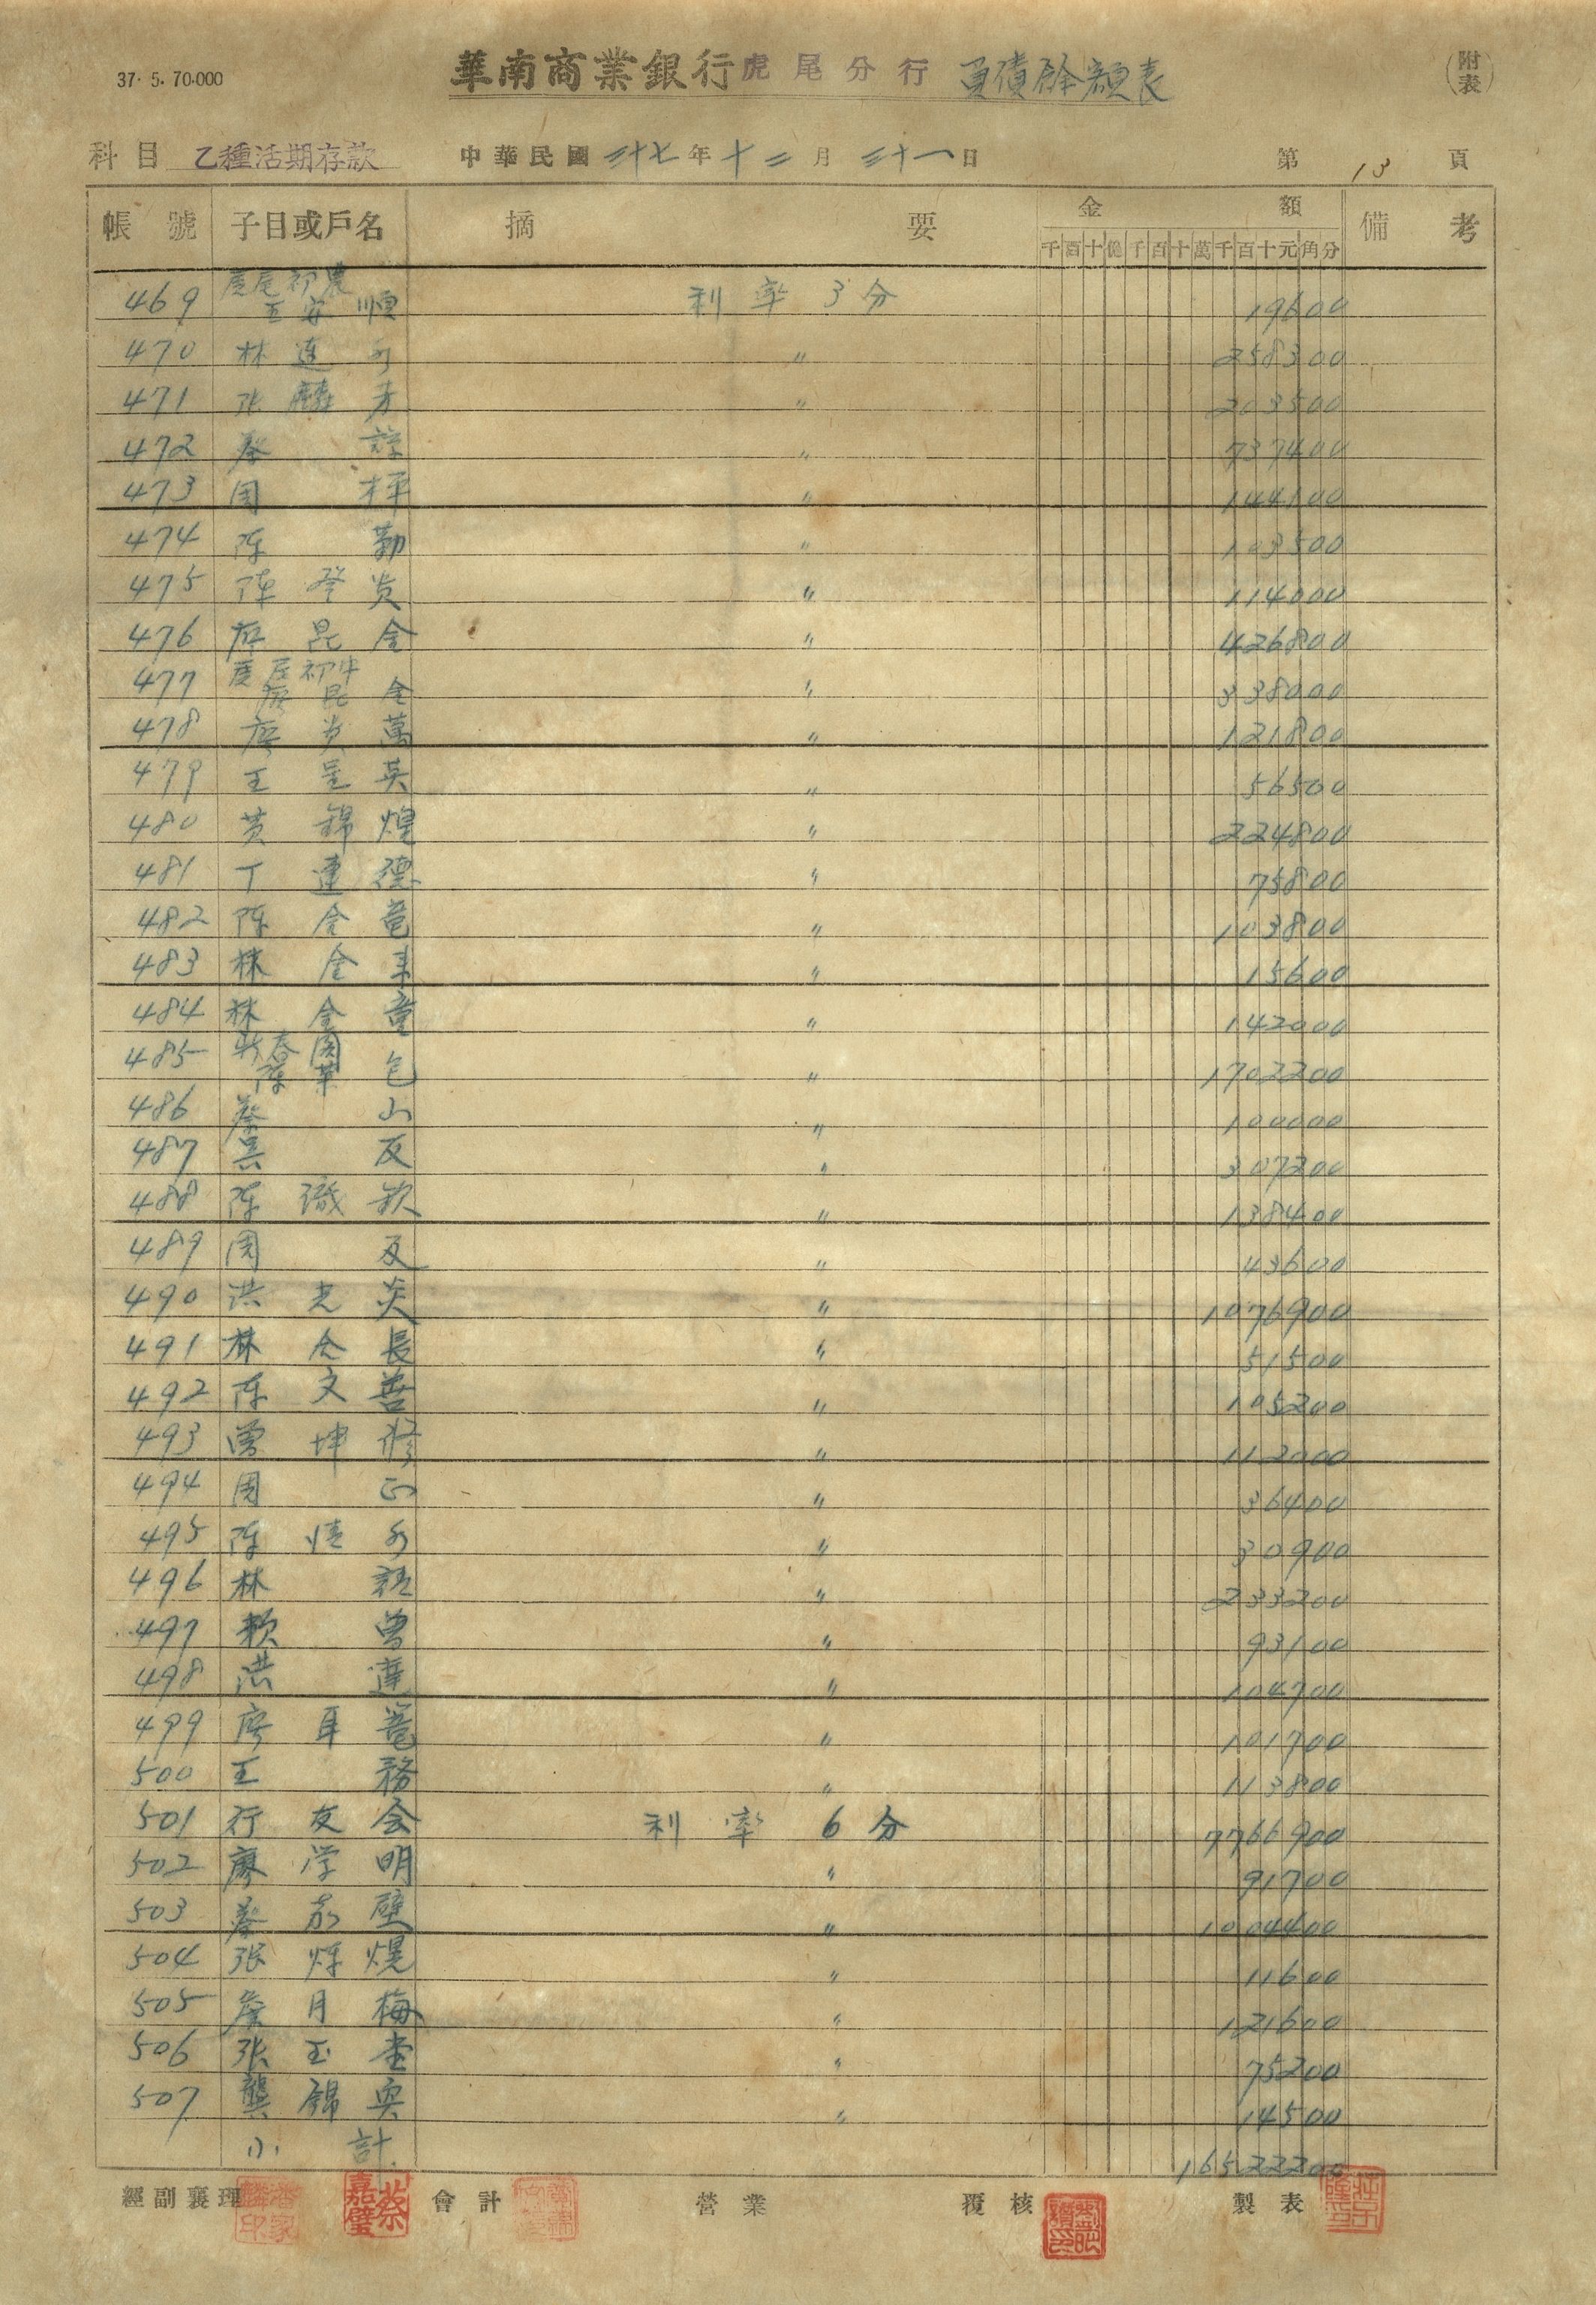 37. 5. 70.000
華南商業銀行虎尾分行 負債餘額表
(附表)
科目 乙種活期存款 中華民國三十七年十二月三十一日 第13頁
帳號 子目或戶名 摘要 金額 備考
千百十億千百十萬千百十元角分
虎尾初農
469 王安順 利率3分 19600
470 林連 〃 258300
471 張麟 〃 203500
472 蔡 〃 737400
473 周坪 〃 144100
474 陳勤 〃 103500
475 陳登貴 〃 114000
476 廖昆金 〃 426800
虎尾初中
477 廖昆金 〃 338000
478 廖貴萬 〃 121800
479 王英 〃 56500
480 黃錦煌 〃 224800
481 丁連德 〃 75800
482 陳金竜 〃 103800
483 林金 〃 15600
484 林金童 〃 142000
485 陳華包 〃 1702200
486 蔡山 〃 100000
487 吳反 〃 307200
488 陳欽 〃 138400
489 周反 〃 43600
490 洪老炎 〃 1076900
491 林金長 〃 51500
492 陳文善 〃 105200
493 曾坤修 〃 112000
494 周 〃 36400
495 陳 〃 30900
496 林 〃 233200
497 賴曾 〃 93100
498 洪達 〃 104700
499 廖耳竜 〃 101700
500 王務 〃 113800
501 行友会 利率6分 7766900
502 廖学明 〃 91700
503 蔡嘉壁 〃 1004400
504 張煌 〃 11600
505 詹月梅 〃 121600
506 張玉 〃 75200
507 龔錦 〃 14500
小計 16522200
經副襄理 蔡嘉璧 會計 營業 覆核 製表